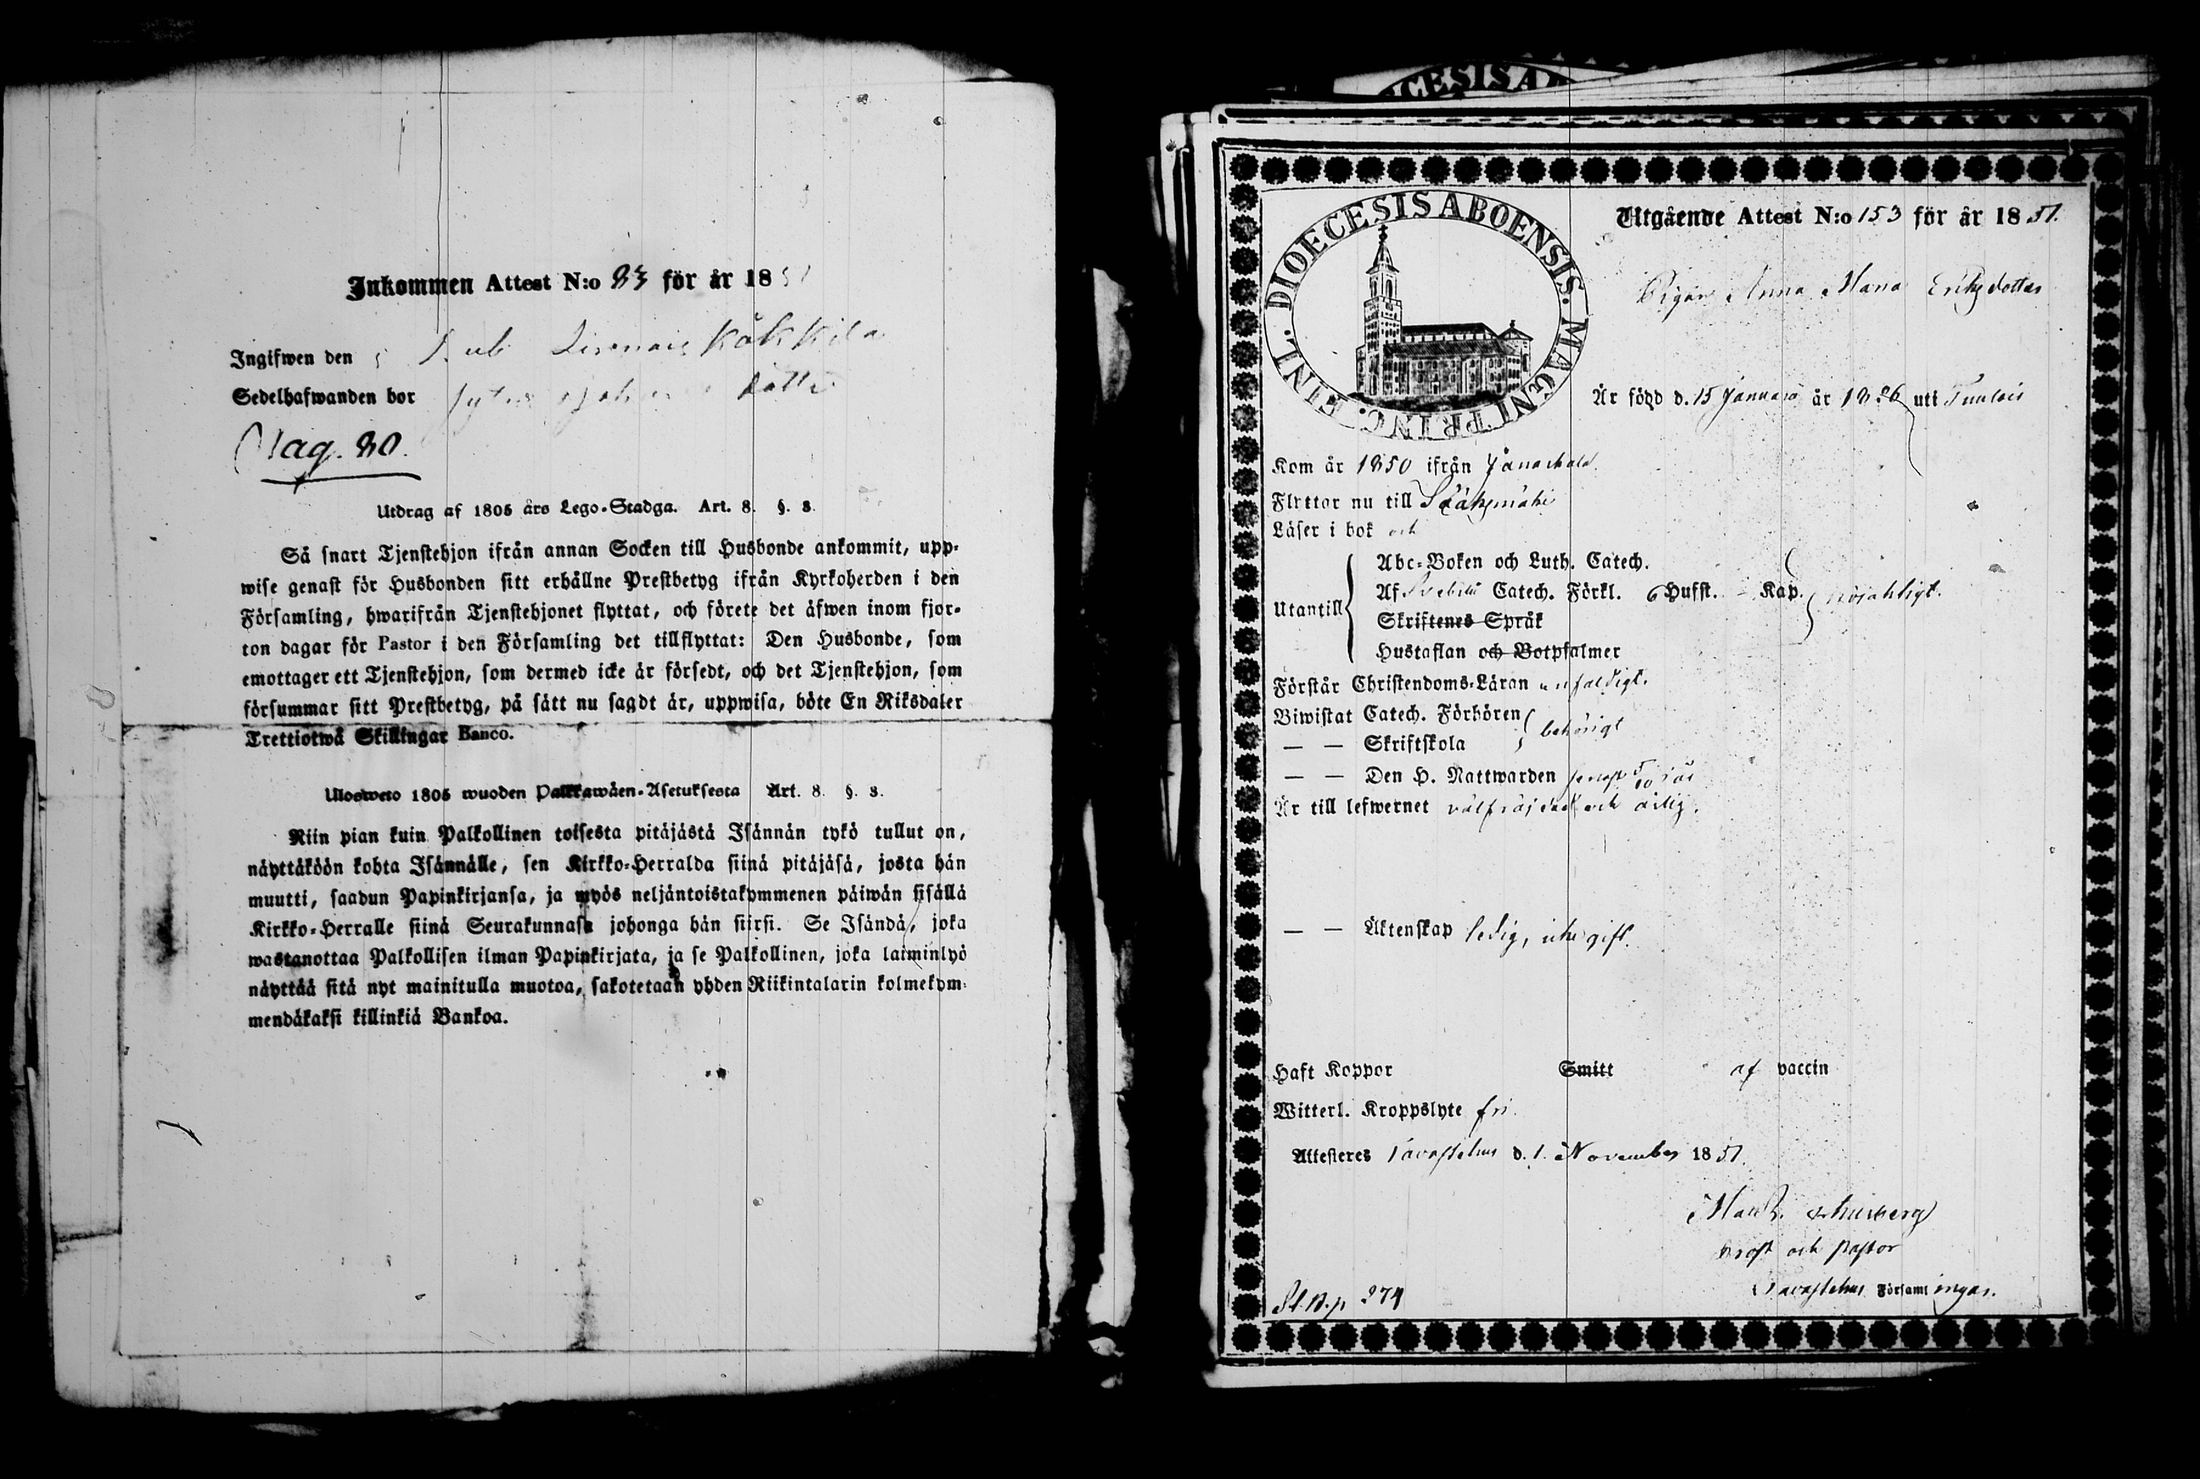 Inkommen Attest N:o 83 för år 18 51
Ingifwen den Kåkkila
Sedelhafwanden bor
Pag. 80.
Utdrag af 1805 års Lego-Stadga. Art. 8. §. 8.
Så snart Tjenstehjon ifrån annan Socken till Husbonde ankommit, upp-
wise genast för Husbonden sitt erhållne Prestbetyg ifrån Kyrkoherden i den
Församling, hwarifrån Tjenstehjonet flyttat, och förete det äfwen inom fjor-
ton dagar för Pastor i den Församling det tillflyttat: Den Husbonde, som
emottager ett Tjenstehjon, som dermed icke är försedt, och det Tjenstehjon, som
försummar sitt Prestbetyg, på sätt nu sagdt är, uppwisa, böte En Riksdaler
Trettiotwå Skillingar Banco.
Ulosweto 1805 wuoden Palkkawäen-Asetuksesta Art. 8. §. 8.
Niin pian kuin Palkollinen toisesta pitäjästä Isännän tykö tullut on,
näyttäköön kohta Isännälle, sen Kirkko-Herralda siinä pitäjäsä, josta hän
muutti, saadun Papinkirjansa, ja myös neljäntoistakymmenen päiwän sisällä
Kirkko-Herralle siinä Seurakunnasa johonga hän siirsi. Se Isändä, joka
wastanottaa Palkollisen ilman Papinkirjata, ja se Palkollinen, joka laiminlyö
näyttää sitä nyt mainitulla muotoa, sakotetaan yhden Riikintalarin kolmekym-
mendäkaksi killinkiä Bankoa.
DIOECESIS ABOENSIS. MAGNI PRINC. FINL.
Utgående Attest N:o 153 för år 1851.
Pigan Anna Maria Eriksdotter
Är född d. 15 Januarii år 1826 uti Tuulois
Kom år 1850 ifrån Janackala
Flyttar nu till Sääksmäki
Läser i bok och
Utantill
Abc-Boken och Luth. Catech.
Af Svebilii Catech. Förkl. 6 Hufst. - Kap.
Skriftenes Språk
Hustaflan och Botpsalmer
Förstår Christendoms-Läran enfaldigt.
Biwistat Catech. Förhören
— — Skriftskola behörigt
— — Den H. Nattwarden
Är till lefwernet välfräjdad och ärlig.
— — Äktenskap ledig, icke gift.
Haft Koppor Smitt af vaccin
Witterl. Kroppslyte fri.
Attesteres Tavastehus d. 1. November 1851.
Prost och Pastor
Tavastehus Församlingar.
274